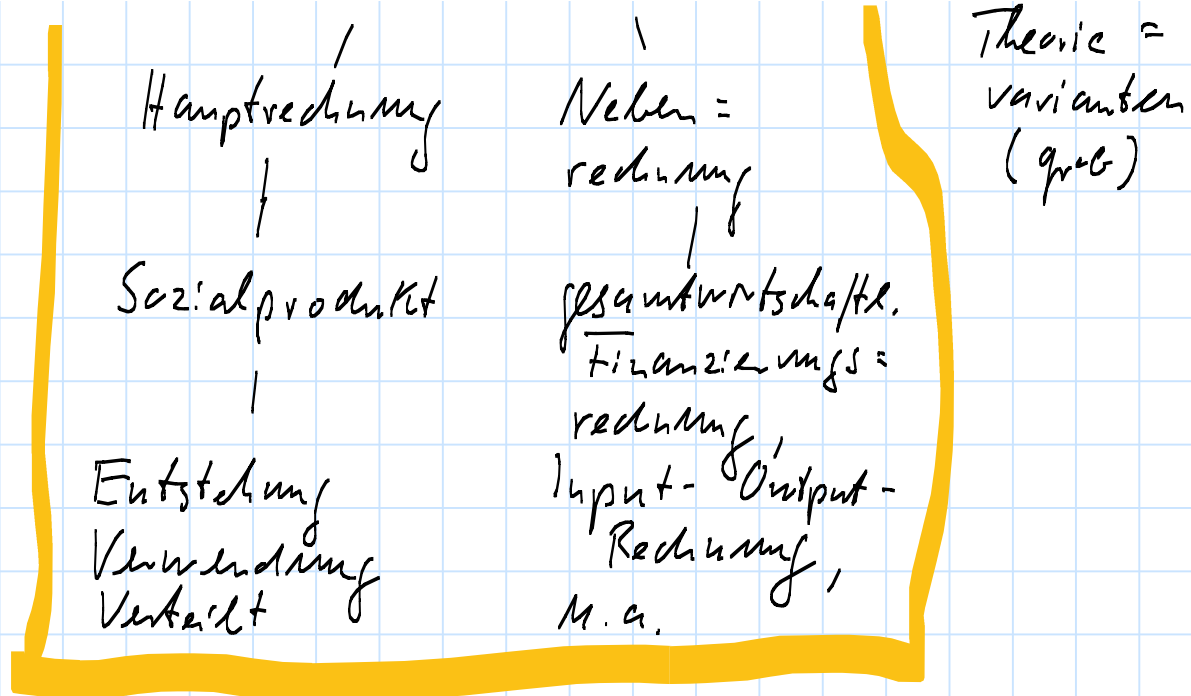 Hauptrechnung
|
Sozialprodukt
|
Entstehung
Verwendung
Verteilt
Neben=
rechnung
gesamtwirtschaftl.
Finanzierungs=
rechnung,
Input-Output-
Rechnung,
u.a.
Theorie=
varianten
(grob)